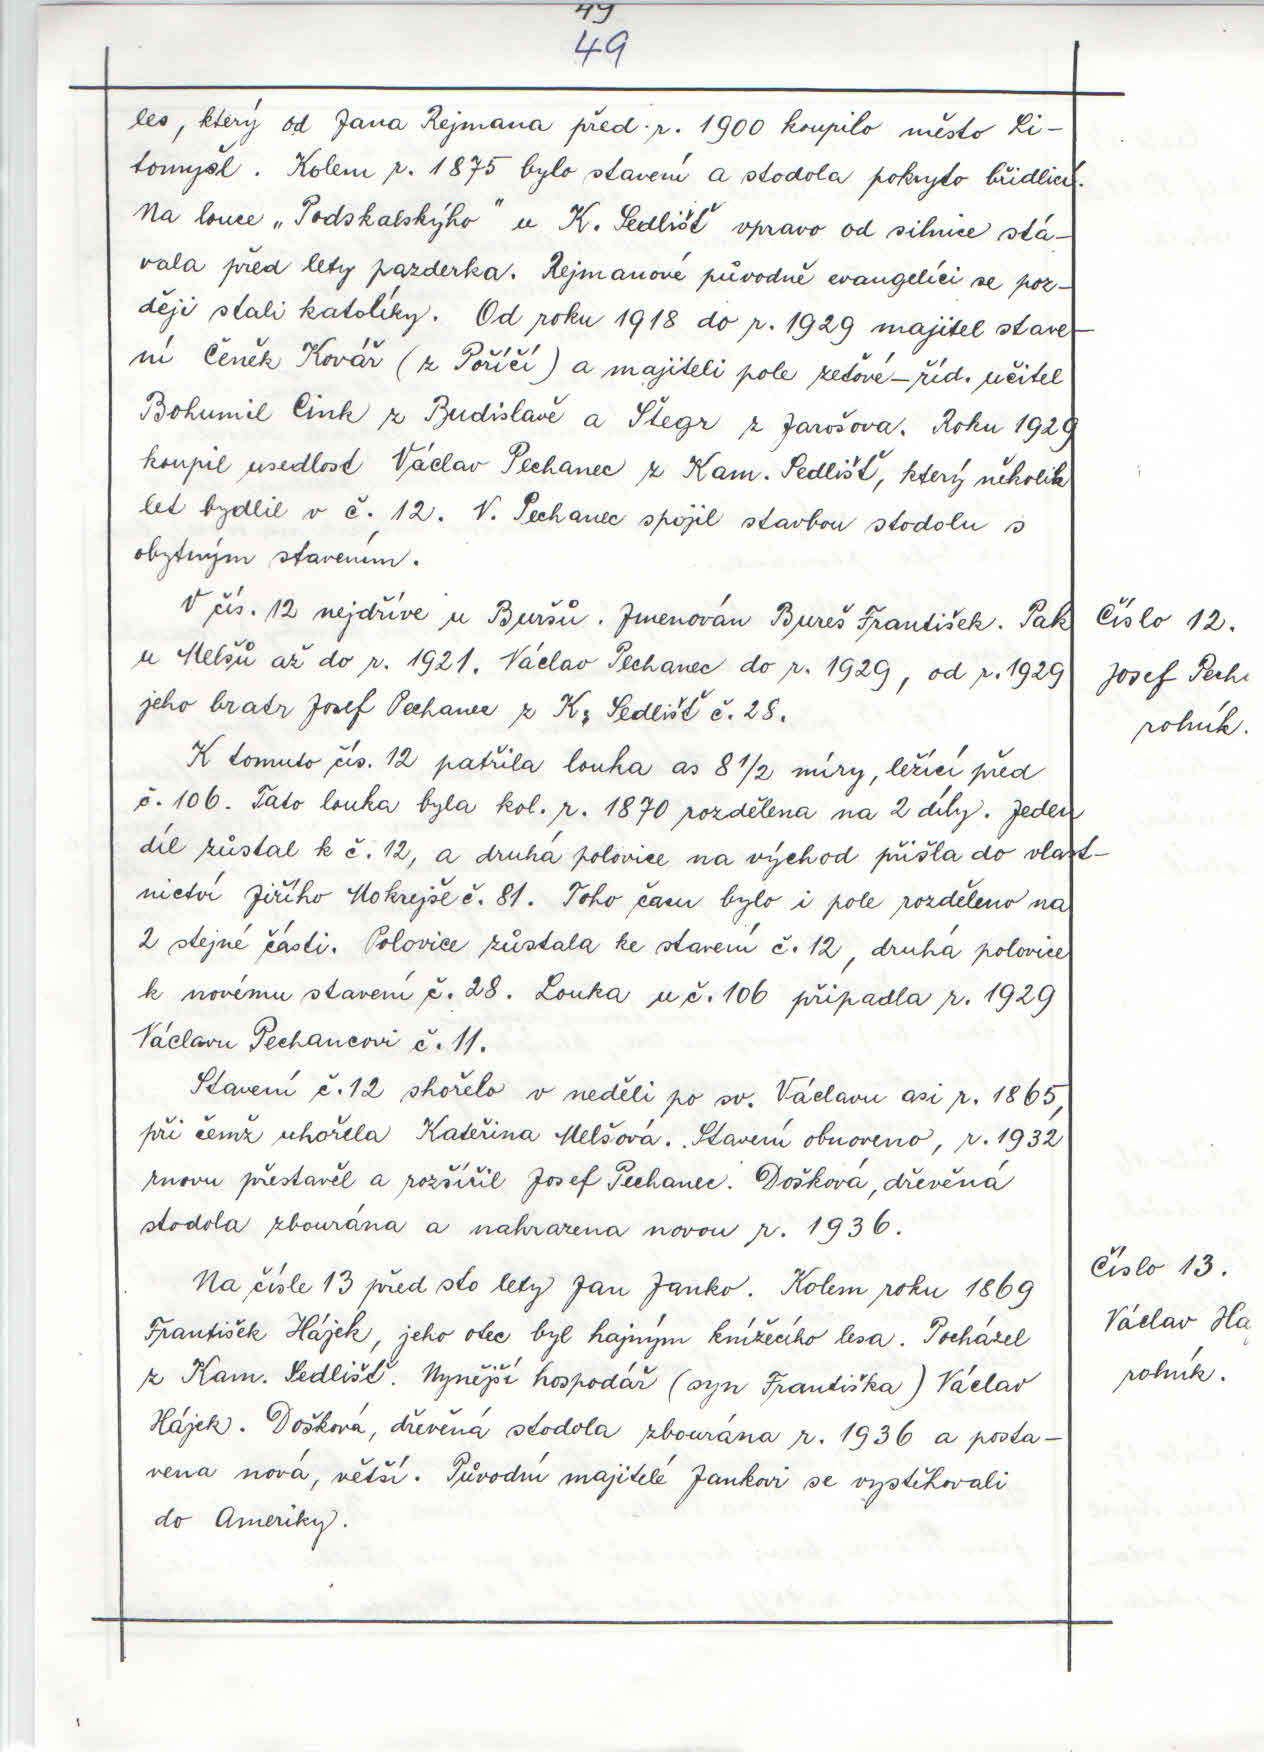 49
49
les, který od Jana Rejmana před r. 1900 koupilo město Li-
tomyšl. Kolem r. 1875 bylo stavení a stodola pokryto břidlicí.
Na louce „Podskalskýho" u K. Sedlišť vpravo od silnice stá-
vala před lety pazderka. Rejmanové původně evangelíci se poz-
ději stali katolíky. Od roku 1918 do r. 1929 majitel stave-
ní Čeněk Kovář (z Poříčí) a majiteli pole zeťové-říd. učitel
Bohumil Cink z Budislavě a Štegr z Jarošova. Roku 1929
koupil usedlost Václav Pechanec z Kam. Sedlišť, který několik
let bydlil v č. 12. V. Pechanec spojil stavbou stodolu s
obytným stavením.
V čís. 12 nejdříve u Buršů. Jmenován Bureš František. Pak
u Melšů až do r. 1921. Václav Pechanec do r. 1929, od r. 1929
jeho bratr Josef Pechanec z K. Sedlišť č. 28.
Číslo 12.
Josef Pech
rolník.
K tomuto čís. 12 patřila louka as 8 1/2 míry, ležící před
č. 106. Tato louka byla kol. r. 1870 rozdělena na 2 díly. Jeden
díl zůstal k č. 12, a druhá polovice na východ přišla do vlast-
nictví Jiřího Mokrejše č. 81. Toho času bylo i pole rozděleno na
2 stejné části. Polovice zůstala ke stavení č. 12, druhá polovice
k novému stavení č. 28. Louka u č. 106 připadla r. 1929
Václavu Pechancovi č. 11.
Stavení č. 12 shořelo v neděli po sv. Václavu asi r. 1865,
při čemž uhořela Kateřina Melšová. Stavení obnoveno, r. 1932
znovu přestavěl a rozšířil Josef Pechanec. Došková, dřevěná
stodola zbourána a nahrazena novou r. 1936.
Na čísle 13 před sto lety Jan Janko. Kolem roku 1869
František Hájek, jeho otec byl hajným knížecího lesa. Pocházel
z Kam. Sedlišť. Nynější hospodář (syn Františka) Václav
Hájek. Došková, dřevěná stodola zbourána r. 1936 a posta-
vena nová, větší. Původní majitelé Jankovi se vystěhovali
do Ameriky.
Číslo 13.
Václav Há
rolník.